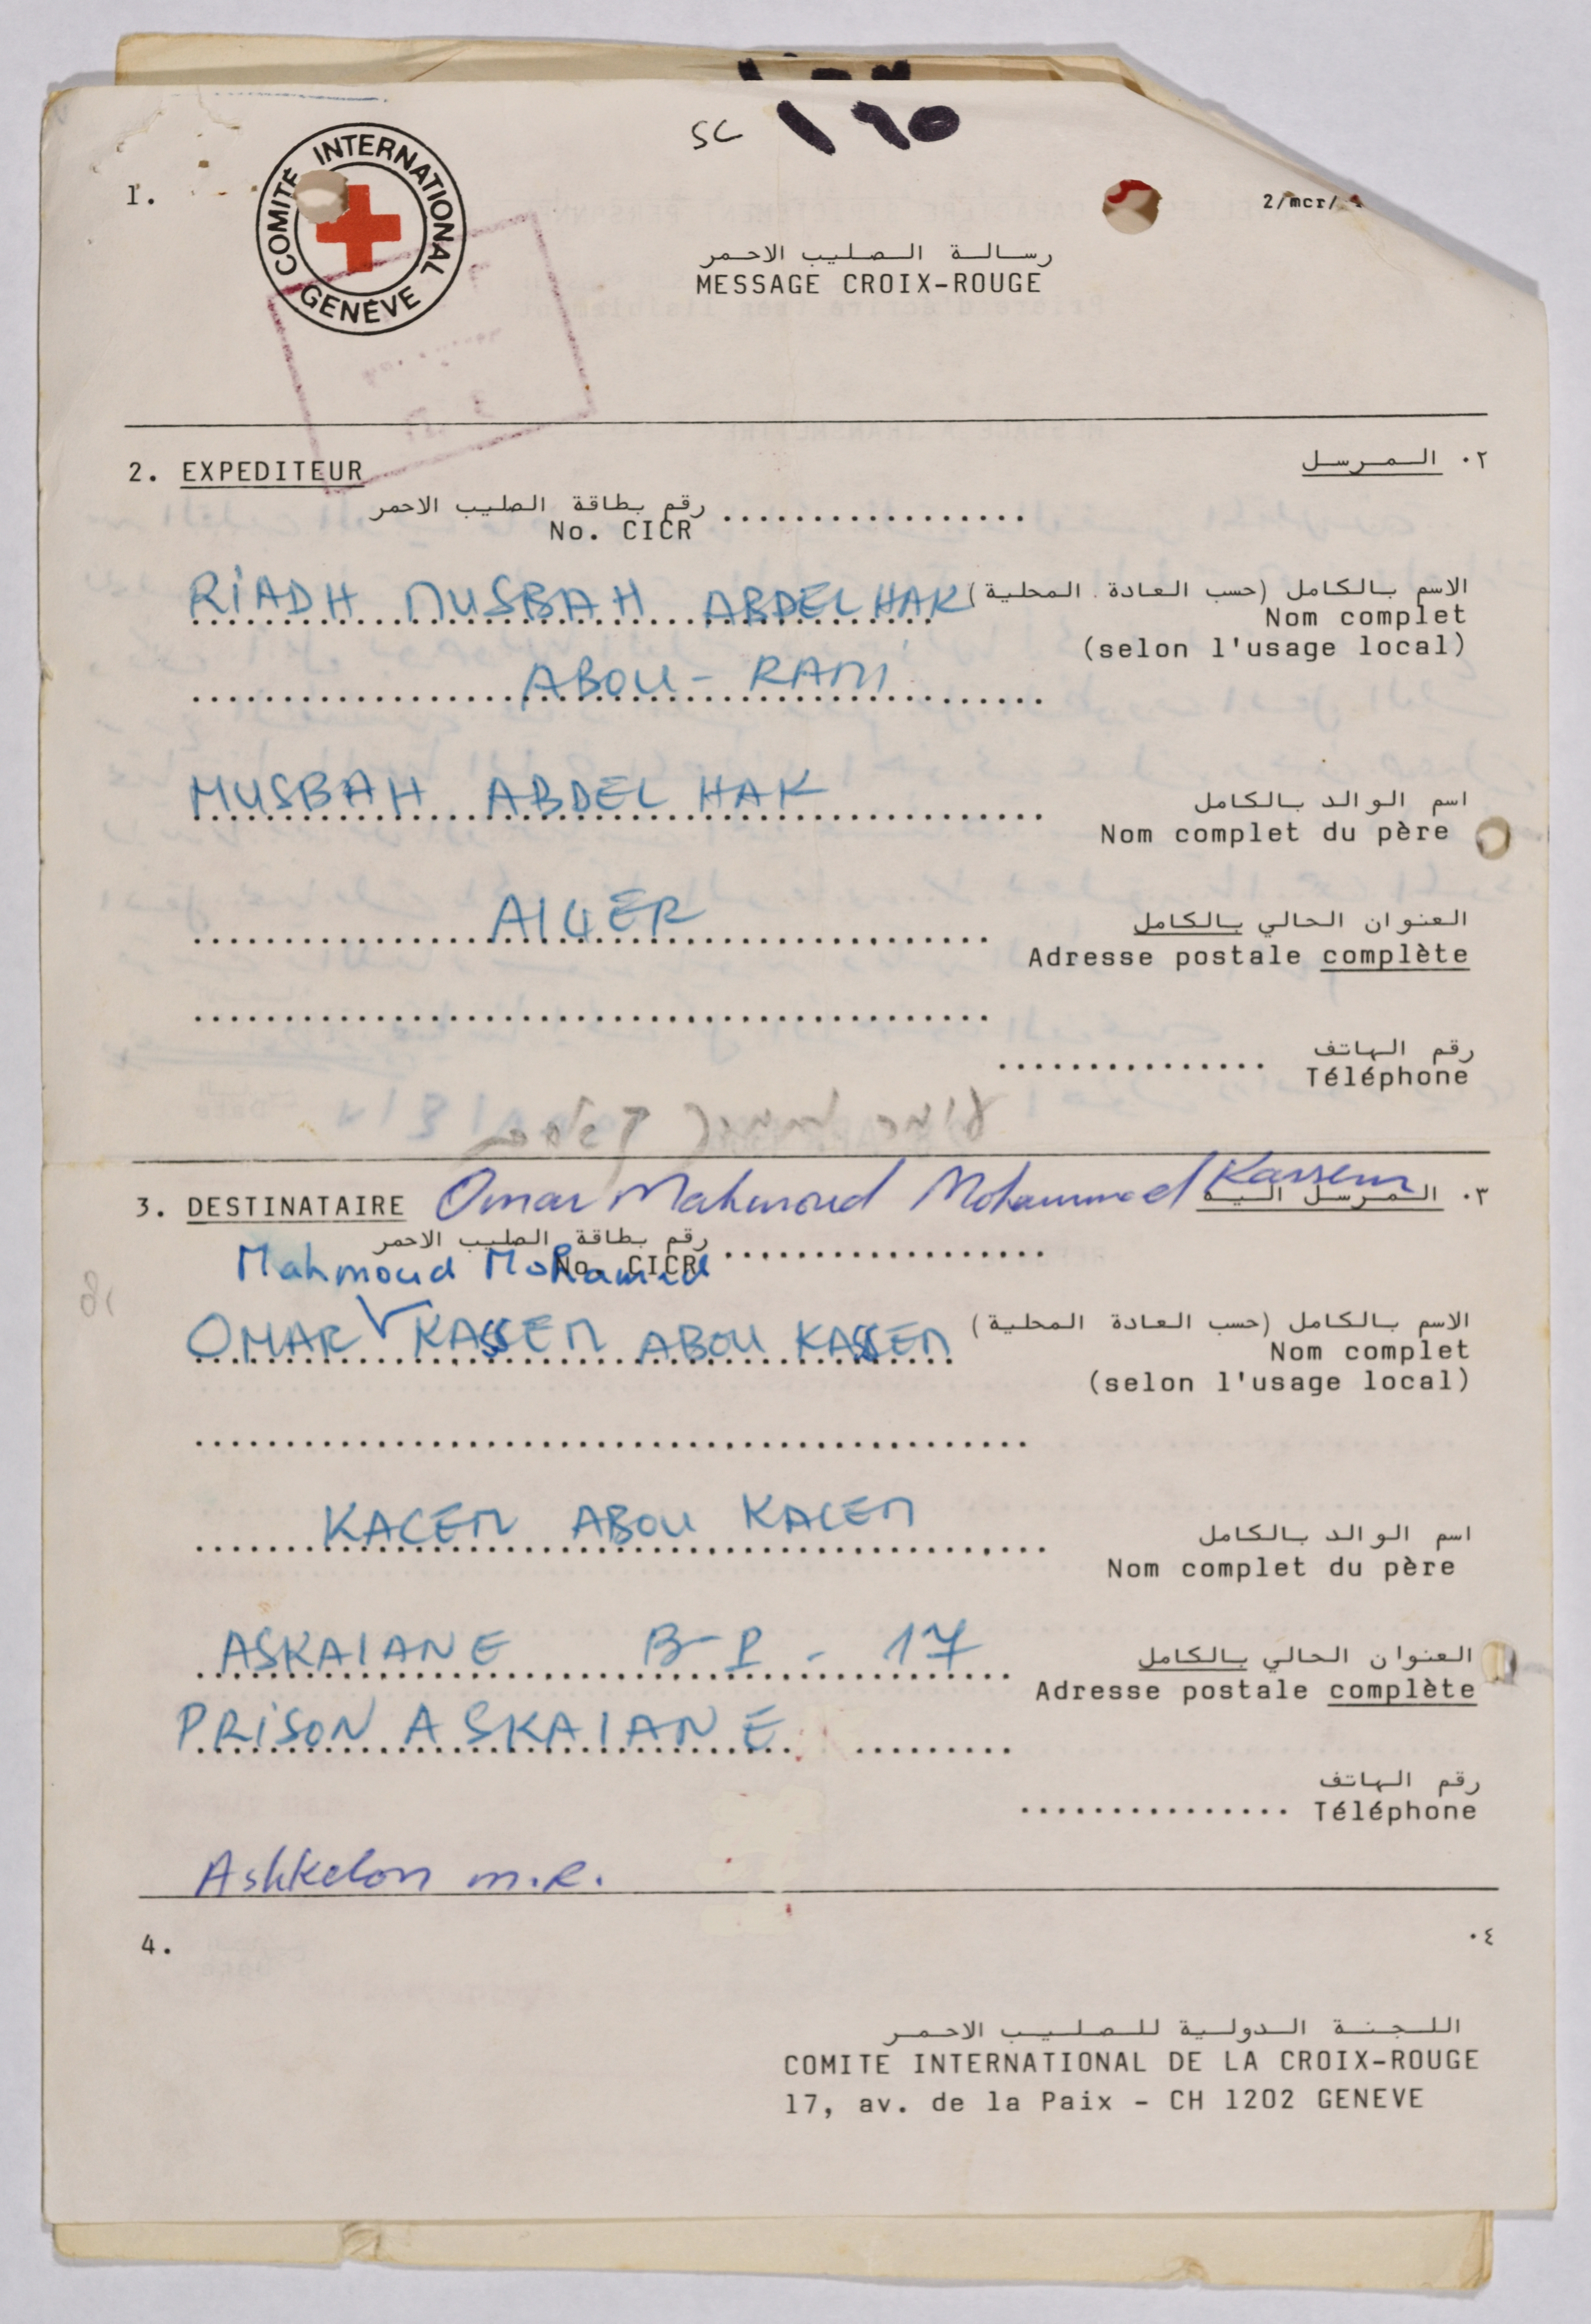 SC 190
1.
COMITÉ INTERNATIONAL GENÈVE
2/mcr/
رسالة الصليب الاحمر
MESSAGE CROIX-ROUGE
2. EXPEDITEUR
٢. المرسل
رقم بطاقة الصليب الاحمر
No. CICR
RIADH MUSBAH ABDELHAK
الاسم بالكامل (حسب العادة المحلية)
Nom complet
(selon l'usage local)
ABOU - RAMI
MUSBAH ABDEL HAK
اسم الوالد بالكامل
Nom complet du père
AlGER
العنوان الحالي بالكامل
Adresse postale complète
رقم الهاتف
Téléphone
3. DESTINATAIRE Omar Mahmoud Mohammed Kassem
٣. المرسل اليه
رقم بطاقة الصليب الاحمر
No. CICR
Mahmoud Mohamed
OMAR KASSEM ABOU KASSEM
الاسم بالكامل (حسب العادة المحلية)
Nom complet
(selon l'usage local)
KACEM ABOU KACEM
اسم الوالد بالكامل
Nom complet du père
ASKAlANE B-P - 17
العنوان الحالي بالكامل
Adresse postale complète
PRISON ASKAlANE
رقم الهاتف
Téléphone
Ashkelon m.R.
4.
٤.
اللجنة الدولية للصليب الاحمر
COMITE INTERNATIONAL DE LA CROIX-ROUGE
17, av. de la Paix - CH 1202 GENEVE